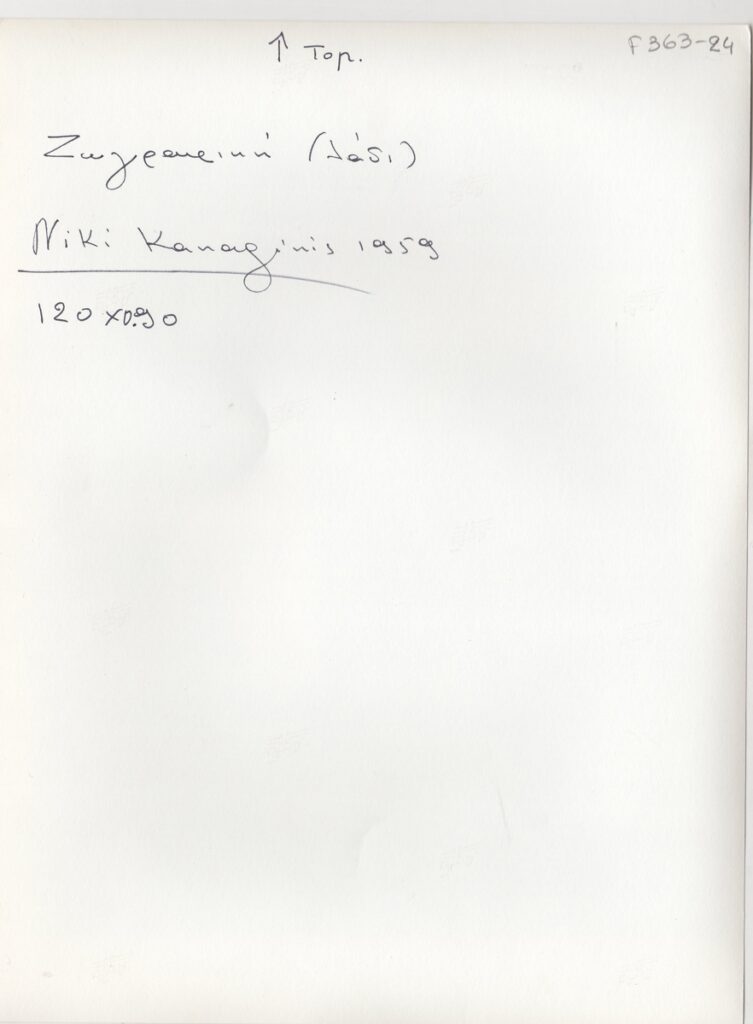 ↑ Top.
F363-24
Ζωγραφική (λάδι)
Niki Kanaginis 1959
120 x 0.90